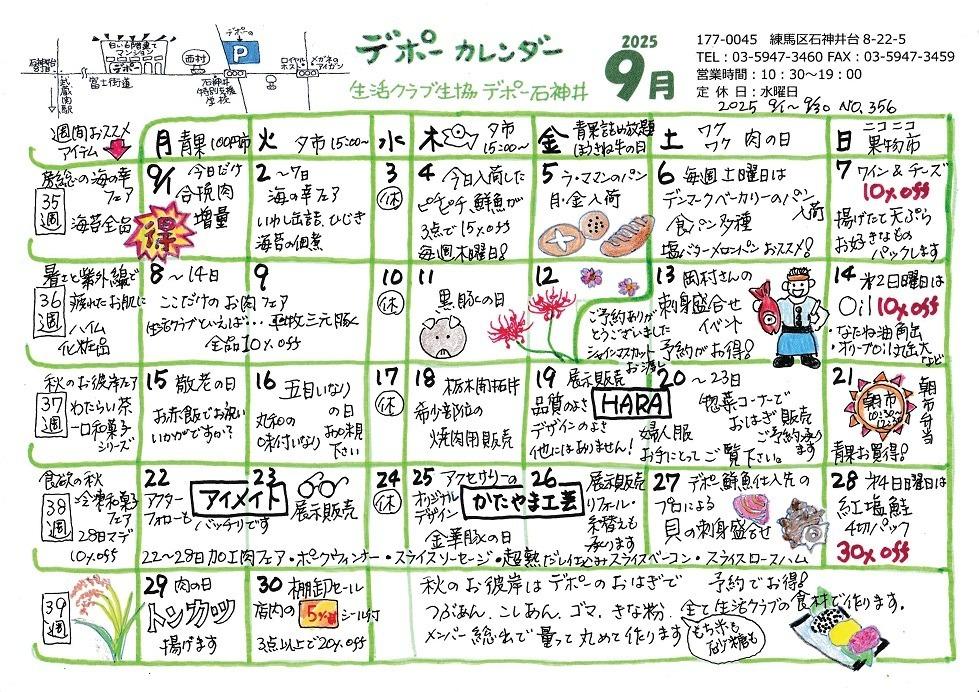 デポー カレンダー
2025
9月
生活クラブ生協 デポー石神井
177-0045 練馬区石神井台8-22-5
TEL：03-5947-3460 FAX：03-5947-3459
営業時間：10：30～19：00
定 休 日：水曜日
2025 9/1～9/30 NO.356
白い6階建て
マンション
デポー
デポーの
P
西村
富士街道
武蔵関駅
石神井
特別支援
学校
ロイヤル
ホスト
メガネの
アイガン
週間おススメ
アイテム
月 青果100円市
火 夕市15:00～
水
木 夕市
15:00～
金 青果詰め放題
ほうきね牛の日
土 ワク
ワク 肉の日
日 ニコニコ
果物市
房総の海の幸
フェア
35
週
海苔全品
9/1 今日だけ
合挽肉
増量
得
2～7日
海の幸フェア
いわし缶詰、ひじき
海苔の佃煮
3
休
4 今日入荷した
ピチピチ鮮魚が
3点で15%off
毎週木曜日!
5 ラ・ママンのパン
月・金入荷
6 毎週土曜日は
デンマークベーカリーのパン
入荷
食パン多種
塩バターメロンパンおススメ!
7 ワイン&チーズ
10%off
揚げたて天ぷら
お好きなもの
パックします
暑さと紫外線で
36
週
疲れたお肌に
ハイム
化粧品
8～14日
9
ここだけのお肉フェア
生活クラブといえば…平牧三元豚
全品10%off
10
休
11
黒豚の日
12
ご予約ありが
とうございました
シャインマスカット
お渡し
13 岡村さんの
刺身盛合せ
イベント
予約がお得!
14 第2日曜日は
Oil 10%off
・なたね油角缶
・オリーブOil丸缶大
など
秋のお彼岸フェア
37
週
わたらい茶
一口和菓子
シリーズ
15 敬老の日
お赤飯でお祝い
いかがですか?
16 五目いなり
の日
丸和の
味付いなり
お試し
下さい
17
休
18 栃木開拓牛
希少部位の
焼肉用販売
19 展示販売
HARA
品質のよさ
デザインのよさ
他にはありません!
婦人服
お手にとってご覧下さい。
20～23日
惣菜コーナーで
おはぎ販売
ご予約承り
ます
21
朝市
10:30～
12:30
朝市弁当
青果お買得!
食欲の秋
38
週
冷凍和菓子
フェア
28日マデ
10%off
22
23
アフター
フォローも
アイメイト
バッチリです
展示販売
24
休
25 アクセサリーの
オリジナル
デザイン
金華豚の日
26
かたやま工芸
展示販売
リフォーム・
糸替えも
承ります
27 デポー鮮魚仕入先の
プロによる
貝の刺身盛合せ
28 第4日曜日は
紅塩鮭
4切パック
30%off
22～28日加工肉フェア・ポークウィンナー・スライスソーセージ・スライスベーコン・スライスロースハム
39
週
29 肉の日
トンカツ
揚げます
30 棚卸セール
店内の 5%引 シール付
3点以上で20%off
秋のお彼岸はデポーのおはぎで 予約でお得!
つぶあん、こしあん、ゴマ、きな粉、全て生活クラブの食材で作ります。
メンバー総出で量って丸めて作ります
もち米も
砂糖も